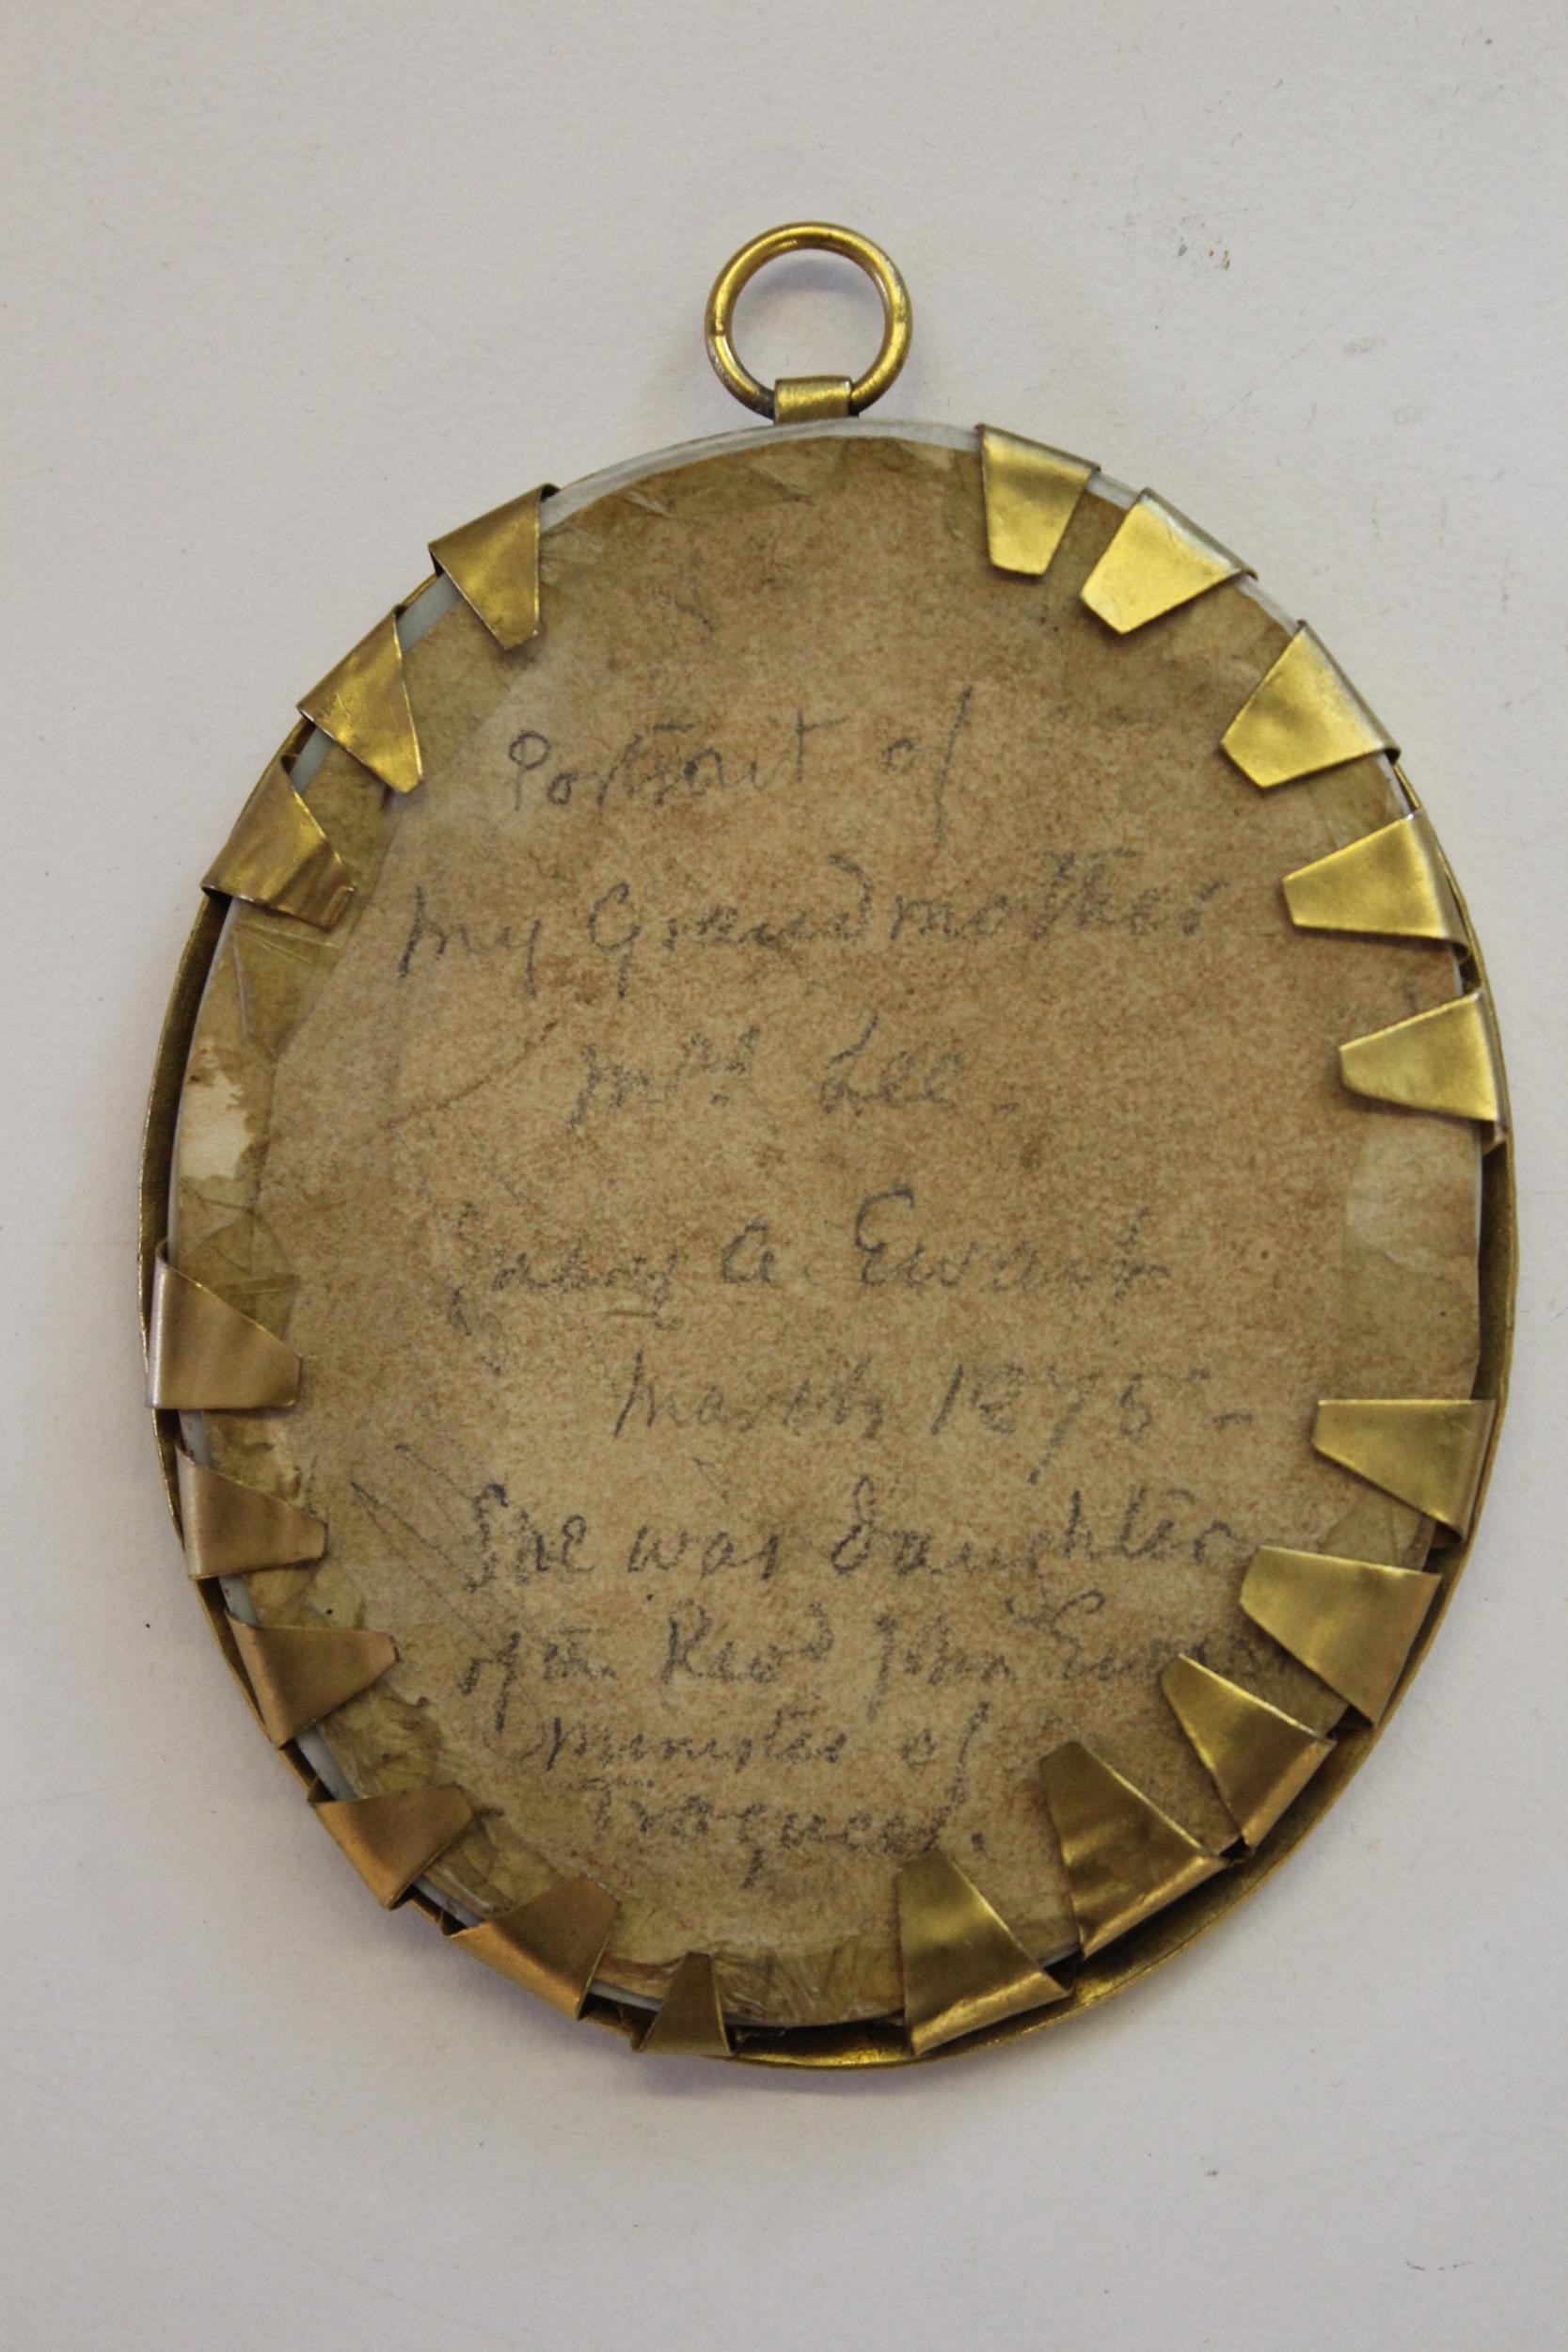 Portrait of
my Grandmother
Mrs Lee -
A. Ewart
March 1875 -
She was daughter
of the Revd John Ewart
Minister of
Troqueer.